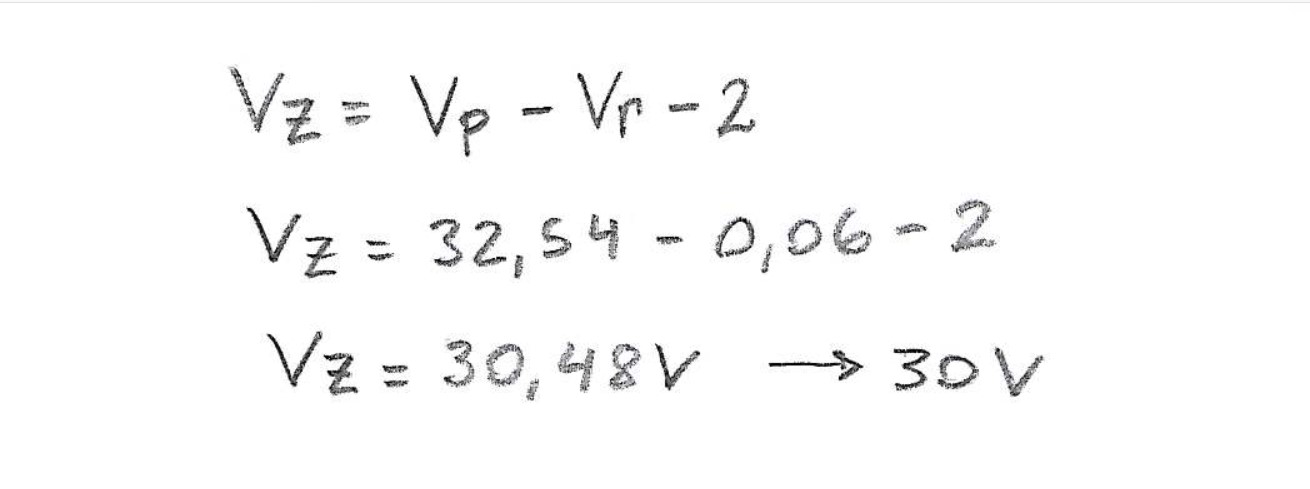 Vz = Vp - Vr - 2
Vz = 32,54 - 0,06 - 2
Vz = 30,48V → 30V